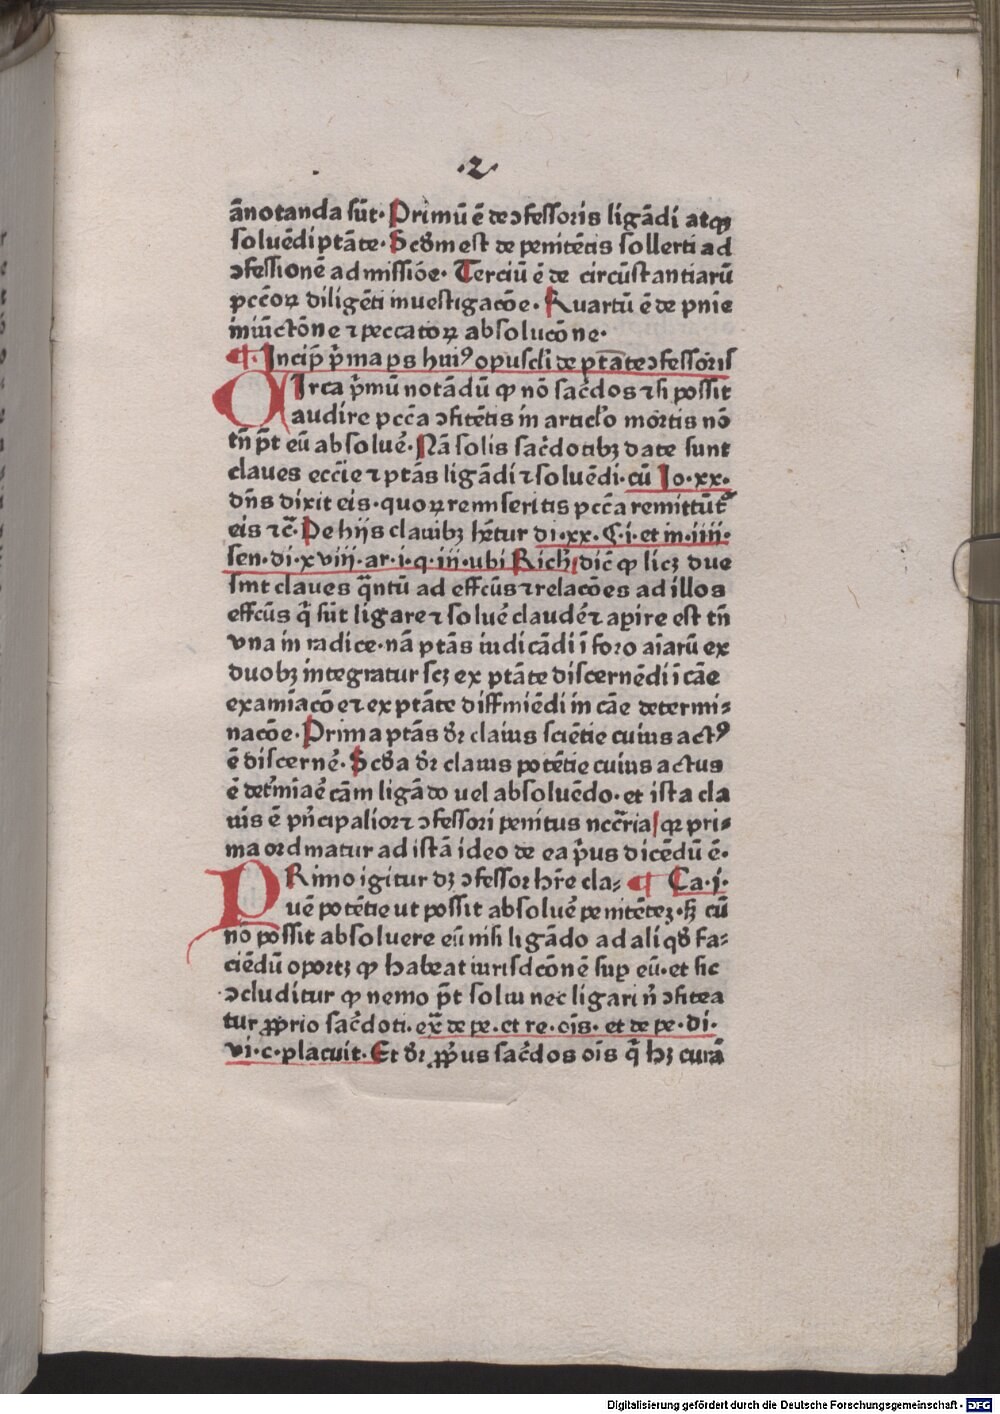 ·2·
ānotanda sūt· Primū ē de ↄfessoris ligādi atqꝫ
soluēdi ptāte· Scd̄m est de penitētis sollerti ad
ↄfessionē admissiōe· Terciū ē de circūstantiarū
pccōꝝ diligēti inuestigacōe· Kuartū ē de pnīe
iniūctōne ⁊ peccatoꝝ absolucōne·
¶· Incip̄ p̄ma ps huiꝰ opuscl̄i de ptāte ↄfessoris
CIrca p̄mū notādū ꝙ nō sac̄dos ⁊si possit
audire pccā ↄfitētis in articl̓o mortis nō
tn̄ p̄t eū absolue᷒· Nā solis sac̄dotibꝫ date sunt
claues ecc̄ie ⁊ ptās ligādi ⁊ soluēdi· cū Io·xx·
dn̄s dixit eis· quoꝝ remiseritis pccā remittūt᷑
eis ⁊c̄· De hijs clauibꝫ hētur di·xx·C·i·et in·iiii·
sen·di·xviii·ar·i·q·iii·ubi Rich᷒ dic̄ ꝙ licꝫ due
sint claues q̄ntū ad effcūs ⁊ relacōes ad illos
effcūs q̄ sūt ligare ⁊ solue᷒ claude᷒ ⁊ apire est tn̄
vna in radice· nā ptās iudicādi ī foro aīarū ex
duobꝫ integratur scꝫ ex ptāte discernēdi ī cāe
examīacōe ⁊ ex ptāte diffiniēdi in cāe determi⸗
nacōe· Prima ptās d̄r clauis sciētie cuius actꝰ
ē discerne᷒· Scd̄a d̄r clauis potētie cuius actus
ē det᷒mīae᷒ cām ligādo uel absoluēdo· et ista cla
uis ē pn̄cipalior ⁊ ↄfessori penitus nccr̄ia qꝛ pri⸗
ma ordinatur ad istā ideo de ea p̄us dicēdū ē·
PRimo igitur dꝫ ↄfessor hr̄e cla⸗ ¶ Ca·j·
uē potētie ut possit absolue᷒ penitētez· sꝫ cū
nō possit absoluere eū nisi ligādo ad aliqd̄ fa⸗
ciēdū oportꝫ ꝙ habeat iurisdcōnē suꝑ eū· et sic
ↄcluditur ꝙ nemo p̄t solui nec ligari n̄ ↄfitea
tur ꝓprio sac̄doti· ex̄ de pe· et re· oīs· et de pe·di·
vi·c·placuit· Et d̄r ꝓpus sac̄dos oīs q̄ hꝫ curā
Digitalisierung gefördert durch die Deutsche Forschungsgemeinschaft · DFG